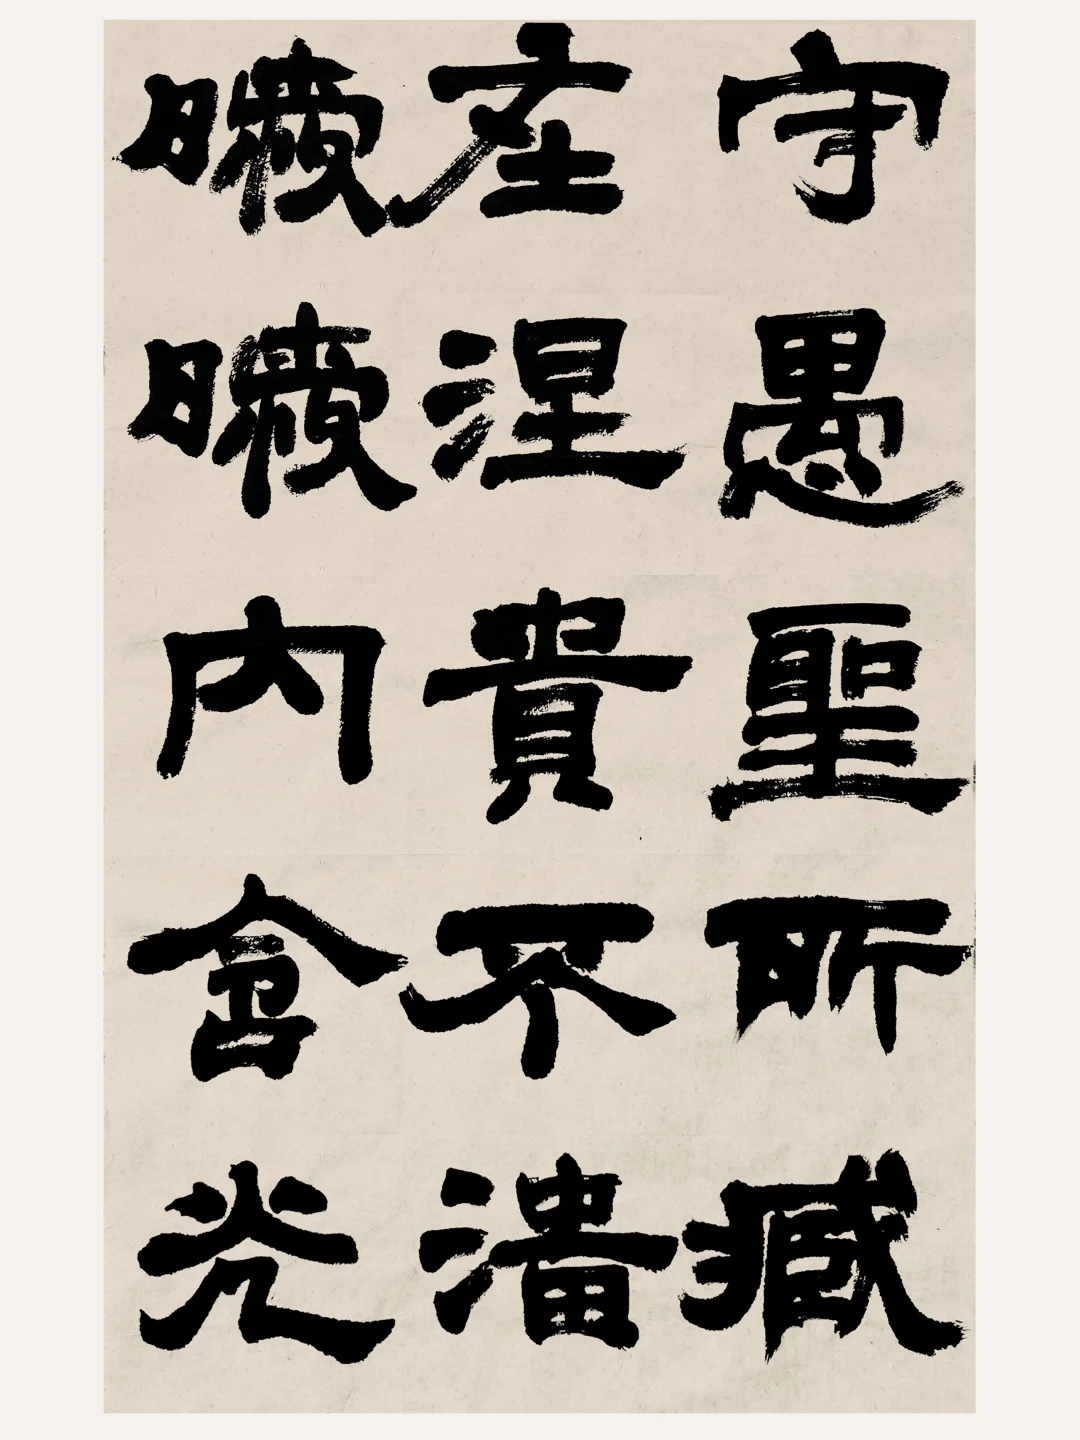 守愚聖所臧
在涅貴不淄
曖曖內含光